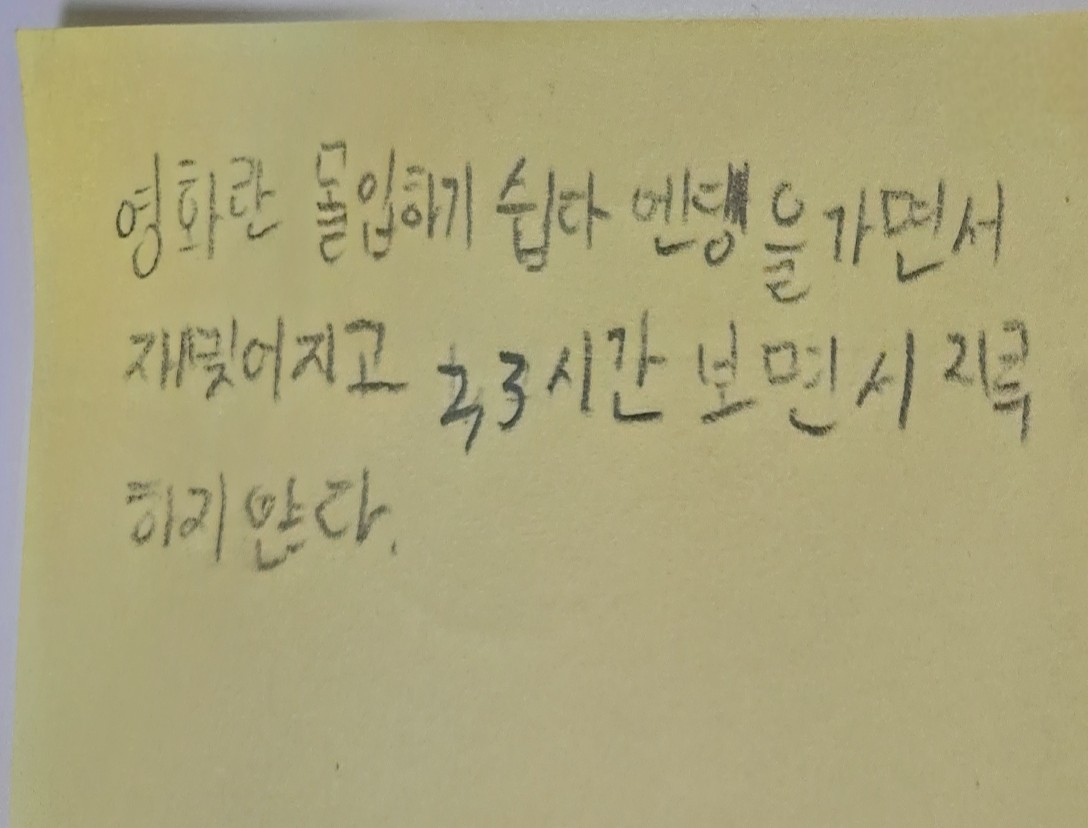 영화란 몰입하기 쉽다 엔뎅을 가면서
재밎어지고 2,3시간 보면서 지룩
하지 안다.